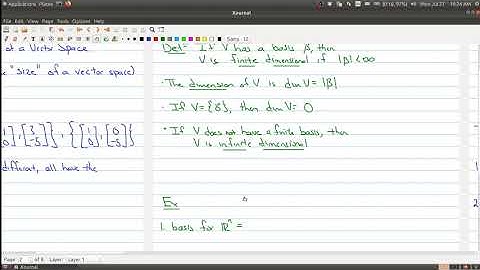 Applications Places
Xournal
(0:16, 97%)
Mon Jul 27 10:24 AM
Xournal
File Edit View Journal Tools Options Help
Sans 12
of a Vector Space
"size" of a vector space)
different, all have the
Def: If V has a basis β, then
V is finite dimensional if |β| < ∞
· The dimension of V is dim V = |β|
· If V = {0}, then dim V = 0
· If V does not have a finite basis, then
V is infinite dimensional
Ex
1. basis for ℝⁿ =
1
2
Page 2 of 8 Layer: Layer 1
Xournal